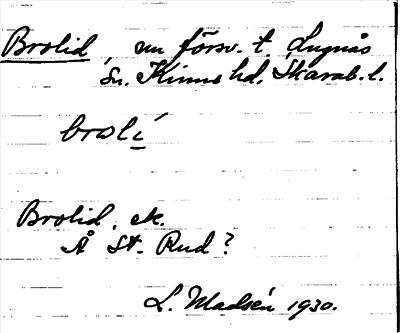 Brolid, um försv. t. Lugnås
Sn. Kinne hd. Skarab. l.
broli
Brolid. ek.
Å St. Rud?
L. Madsén 1930.